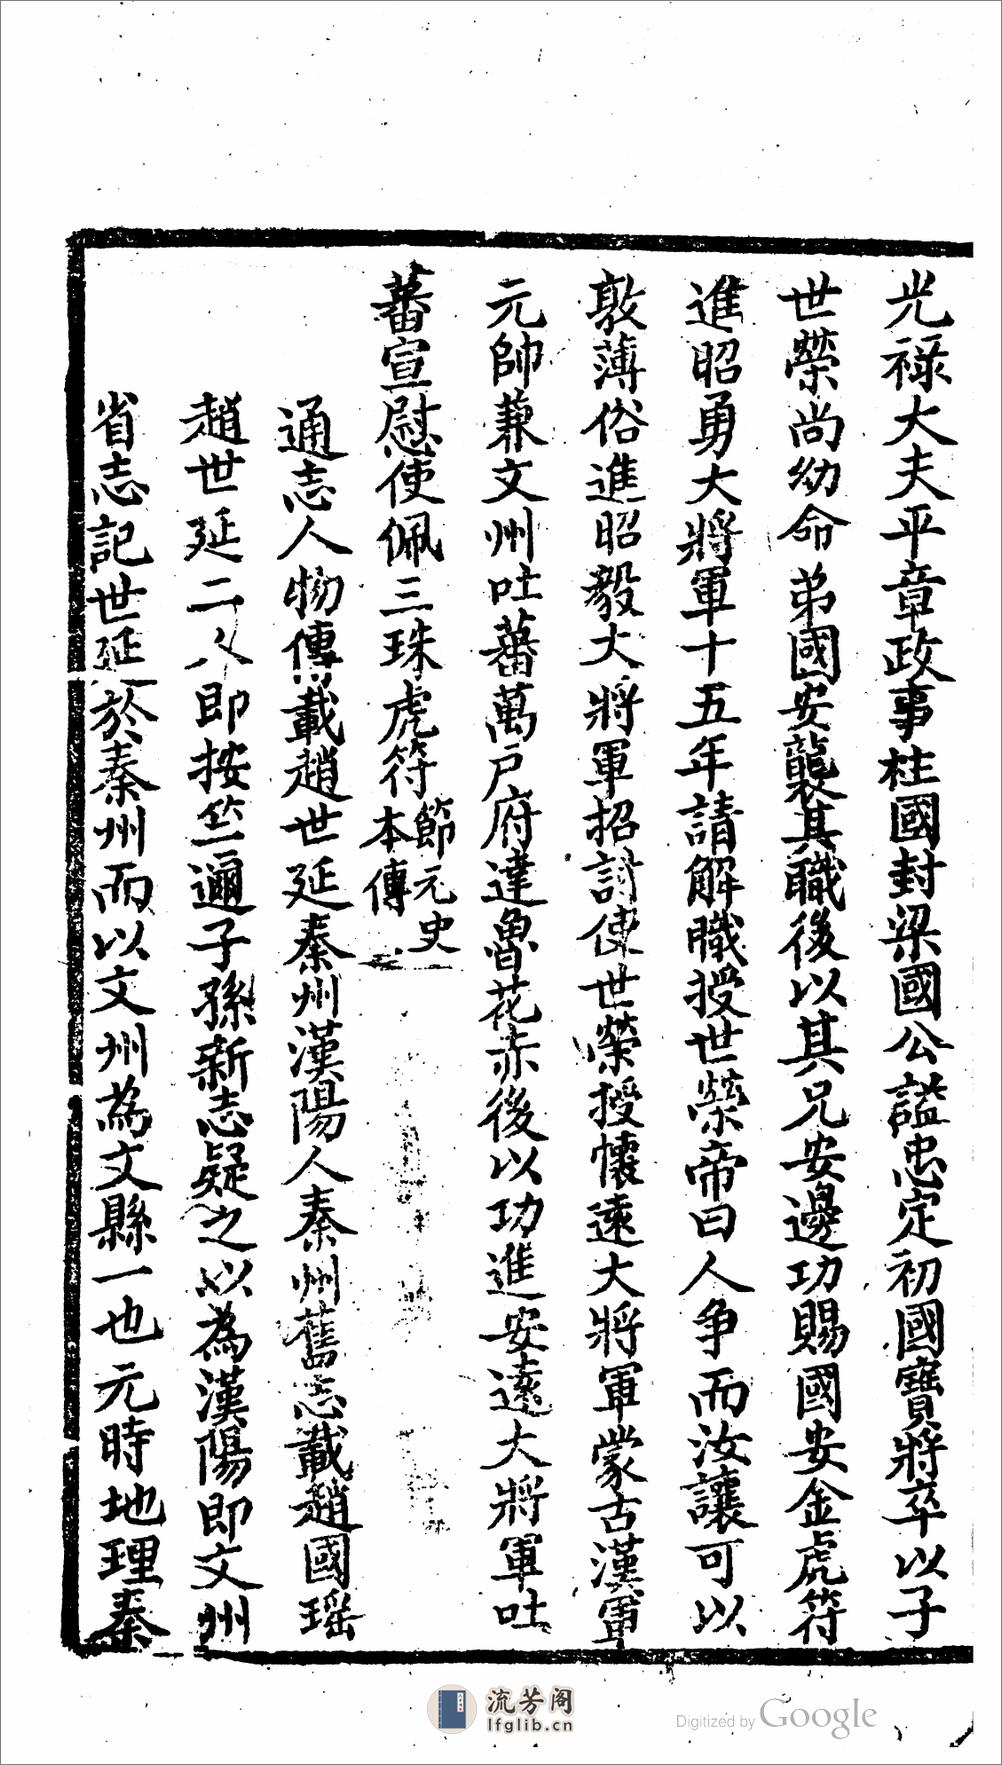 光祿大夫平章政事柱國封梁國公謚忠定初國寶將卒以子
世榮尚幼命弟國安襲其職後以其兄安邊功賜國安金虎符
進昭勇大將軍十五年請解職授世榮帝曰人争而汝讓可以
敦薄俗進昭毅大將軍招討使世榮授懷遠大將軍蒙古漢軍
元帥兼文州吐蕃萬户府達魯花赤後以功進安遠大將軍吐
蕃宣慰使佩三珠虎符節元史本傳
通志人物傳載趙世延秦州漢陽人秦州舊志載趙國瑶
趙世延二人即按竺邇子孫新志疑之以為漢陽即文州
省志記世延於秦州而以文州為文縣一也元時地理秦
流芳阁
lfglib.cn
Digitized by Google